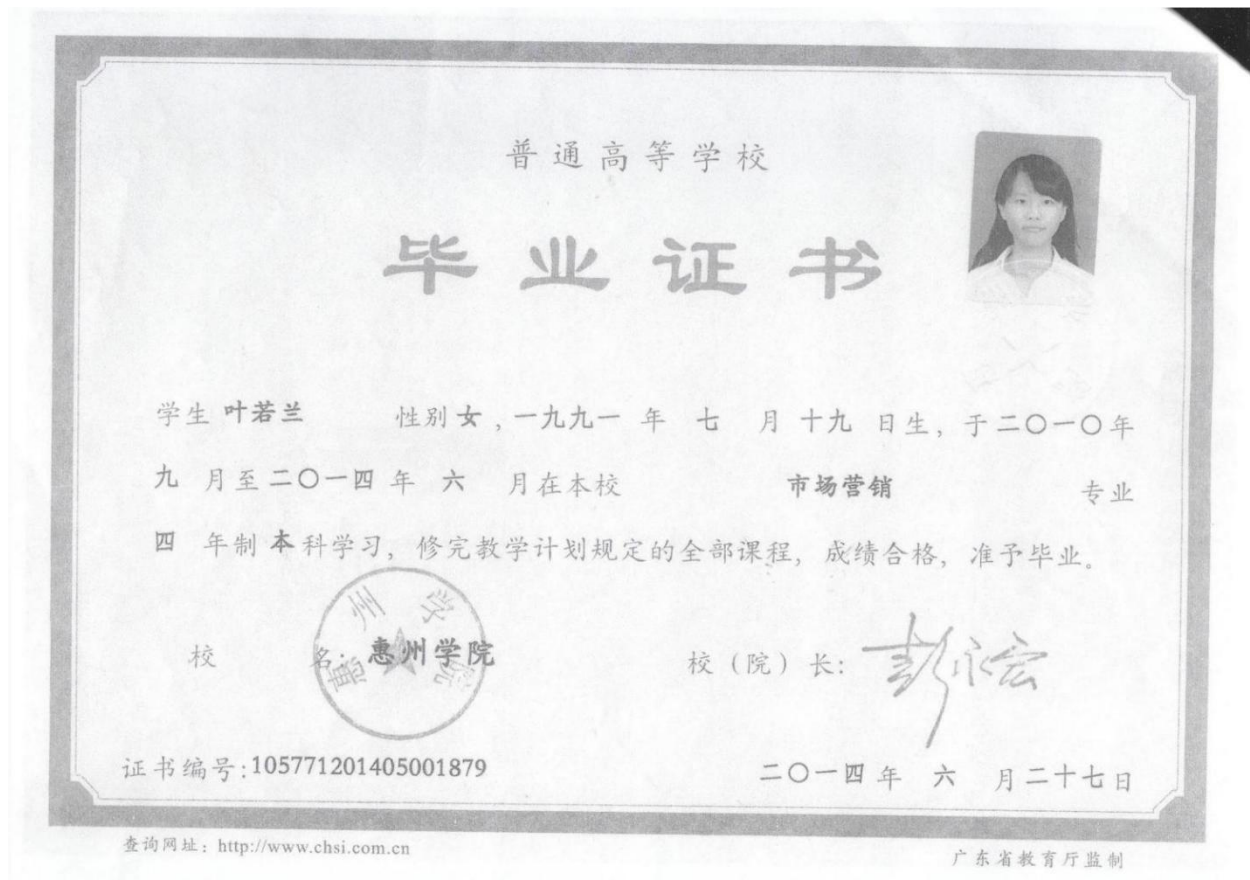 普通高等学校
毕业证书
学生 叶若兰 性别 女 ，一九九一 年 七 月 十九 日生，于二〇一〇年
九 月至二〇一四 年 六 月在本校 市场营销 专业
四 年制 本 科学习，修完教学计划规定的全部课程，成绩合格，准予毕业。
惠州学院
校 名：惠州学院 校（院）长：
证书编号:105771201405001879 二〇一四 年 六 月二十七日
查询网址：http://www.chsi.com.cn 广东省教育厅监制